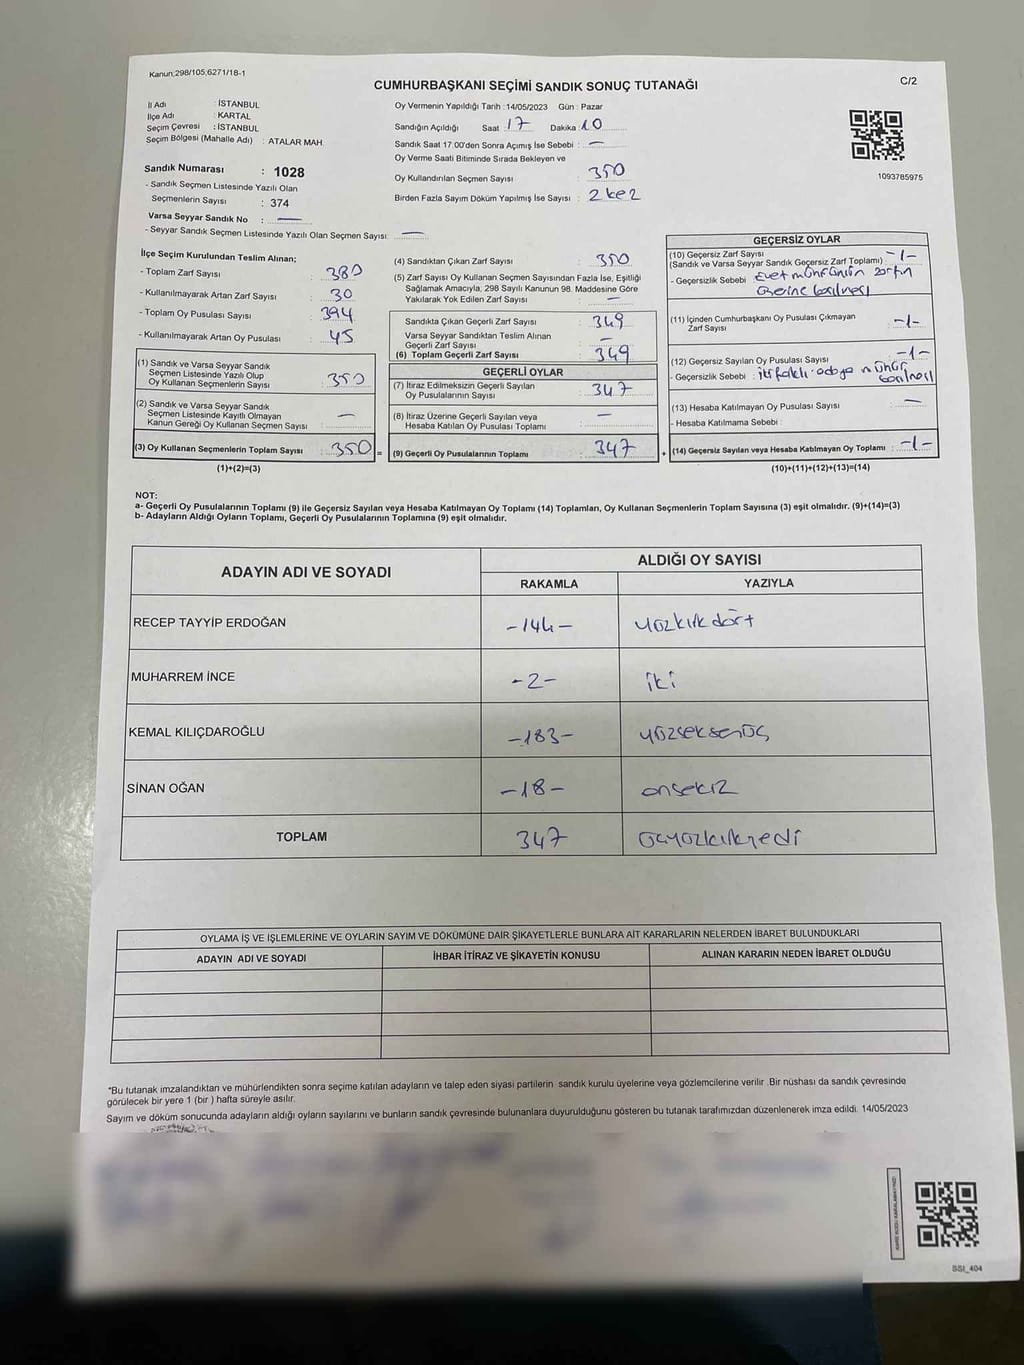 Kanun:298/105,6271/18-1
CUMHURBAŞKANI SEÇİMİ SANDIK SONUÇ TUTANAĞI
C/2
İl Adı : İSTANBUL
İlçe Adı : KARTAL
Seçim Çevresi : İSTANBUL
Seçim Bölgesi (Mahalle Adı) : ATALAR MAH.
Sandık Numarası : 1028
- Sandık Seçmen Listesinde Yazılı Olan
Seçmenlerin Sayısı : 374
Varsa Seyyar Sandık No : —
- Seyyar Sandık Seçmen Listesinde Yazılı Olan Seçmen Sayısı: —
Oy Vermenin Yapıldığı Tarih :14/05/2023 Gün : Pazar
Sandığın Açıldığı Saat 17 Dakika :10
Sandık Saat 17.00'den Sonra Açımış İse Sebebi : —
Oy Verme Saati Bitiminde Sırada Bekleyen ve
Oy Kullandırılan Seçmen Sayısı : 350
Birden Fazla Sayım Döküm Yapılmış İse Sayısı : 2 kez
1093785975
İlçe Seçim Kurulundan Teslim Alınan;
- Toplam Zarf Sayısı : 380
- Kullanılmayarak Artan Zarf Sayısı : 30
- Toplam Oy Pusulası Sayısı : 394
- Kullanılmayarak Artan Oy Pusulası : 45
(1) Sandık ve Varsa Seyyar Sandık
Seçmen Listesinde Yazılı Olup
Oy Kullanan Seçmenlerin Sayısı : 350
(2) Sandık ve Varsa Seyyar Sandık
Seçmen Listesinde Kayıtlı Olmayan
Kanun Gereği Oy Kullanan Seçmen Sayısı : —
(3) Oy Kullanan Seçmenlerin Toplam Sayısı : 350 =
(1)+(2)=(3)
(4) Sandıktan Çıkan Zarf Sayısı : 350
(5) Zarf Sayısı Oy Kullanan Seçmen Sayısından Fazla İse, Eşitliği
Sağlamak Amacıyla, 298 Sayılı Kanunun 98. Maddesine Göre
Yakılarak Yok Edilen Zarf Sayısı : —
Sandıkta Çıkan Geçerli Zarf Sayısı : 349
Varsa Seyyar Sandıktan Teslim Alınan
Geçerli Zarf Sayısı : —
(6) Toplam Geçerli Zarf Sayısı : 349
GEÇERLİ OYLAR
(7) İtiraz Edilmeksizin Geçerli Sayılan
Oy Pusulalarının Sayısı : 347
(8) İtiraz Üzerine Geçerli Sayılan veya
Hesaba Katılan Oy Pusulası Toplamı : —
(9) Geçerli Oy Pusulalarının Toplamı : 347 +
GEÇERSİZ OYLAR
(10) Geçersiz Zarf Sayısı
(Sandık ve Varsa Seyyar Sandık Geçersiz Zarf Toplamı) : -1-
- Geçersizlik Sebebi : Evet mührünün zarfın
üzerine basılması
(11) İçinden Cumhurbaşkanı Oy Pusulası Çıkmayan
Zarf Sayısı : -1-
(12) Geçersiz Sayılan Oy Pusulası Sayısı : -1-
- Geçersizlik Sebebi : iki farklı adaya mühür
basılması
(13) Hesaba Katılmayan Oy Pusulası Sayısı : —
- Hesaba Katılmama Sebebi :
(14) Geçersiz Sayılan veya Hesaba Katılmayan Oy Toplamı : -1-
(10)+(11)+(12)+(13)=(14)
NOT:
a- Geçerli Oy Pusulalarının Toplamı (9) ile Geçersiz Sayılan veya Hesaba Katılmayan Oy Toplamı (14) Toplamları, Oy Kullanan Seçmenlerin Toplam Sayısına (3) eşit olmalıdır. (9)+(14)=(3)
b- Adayların Aldığı Oyların Toplamı, Geçerli Oy Pusulalarının Toplamına (9) eşit olmalıdır.
ADAYIN ADI VE SOYADI
ALDIĞI OY SAYISI
RAKAMLA YAZIYLA
RECEP TAYYİP ERDOĞAN -144- yüzkırkdört
MUHARREM İNCE -2- iki
KEMAL KILIÇDAROĞLU -183- yüzseksenüç
SİNAN OĞAN -18- onsekiz
TOPLAM 347 üçyüzkırkyedi
OYLAMA İŞ VE İŞLEMLERİNE VE OYLARIN SAYIM VE DÖKÜMÜNE DAİR ŞİKAYETLERLE BUNLARA AİT KARARLARIN NELERDEN İBARET BULUNDUKLARI
ADAYIN ADI VE SOYADI İHBAR İTİRAZ VE ŞİKAYETİN KONUSU ALINAN KARARIN NEDEN İBARET OLDUĞU
*Bu tutanak imzalandıktan ve mühürlendikten sonra seçime katılan adayların ve talep eden siyasi partilerin sandık kurulu üyelerine veya gözlemcilerine verilir .Bir nüshası da sandık çevresinde
görülecek bir yere 1 (bir ) hafta süreyle asılır.
Sayım ve döküm sonucunda adayların aldığı oyların sayılarını ve bunların sandık çevresinde bulunanlara duyurulduğunu gösteren bu tutanak tarafımızdan düzenlenerek imza edildi. 14/05/2023
SSI_404